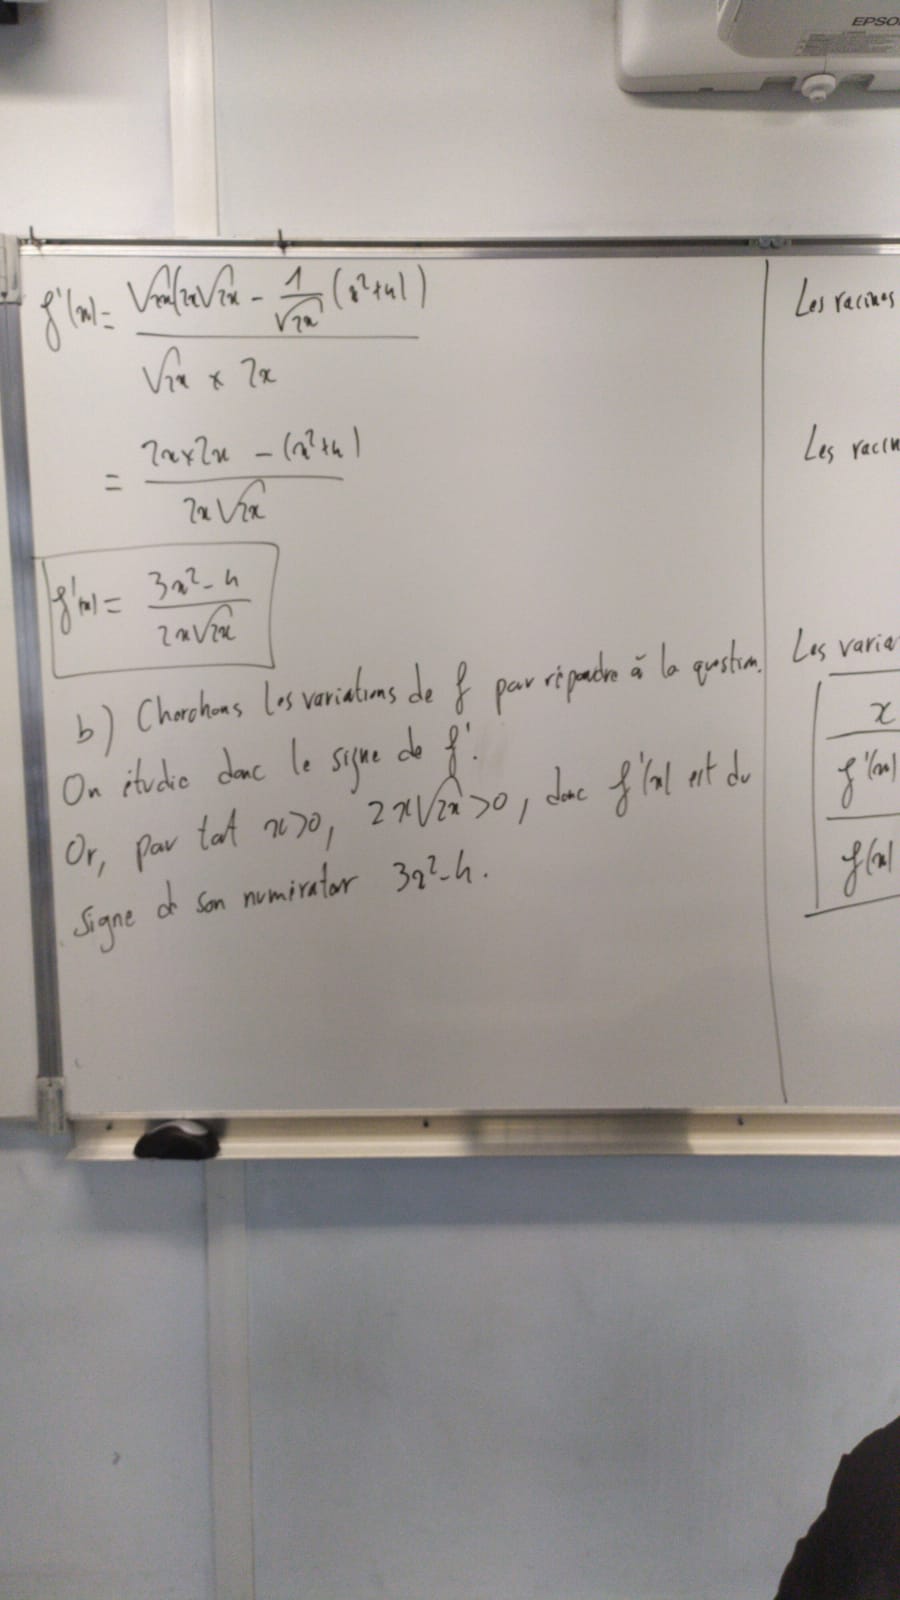 EPSO
f'(x) = √2x(2x√2x - 1/√2x (x²+4)) / √2x × 2x
= 2x×2x - (x²+4) / 2x√2x
f'(x) = 3x²-4 / 2x√2x
b) Cherchons les variations de f pour répondre à la question.
On étudie donc le signe de f'.
Or, pour tout x>0, 2x√2x >0, donc f'(x) est du
signe de son numérateur 3x²-4.
Les racines
Les racin
Les varia
x
f'(x)
f(x)